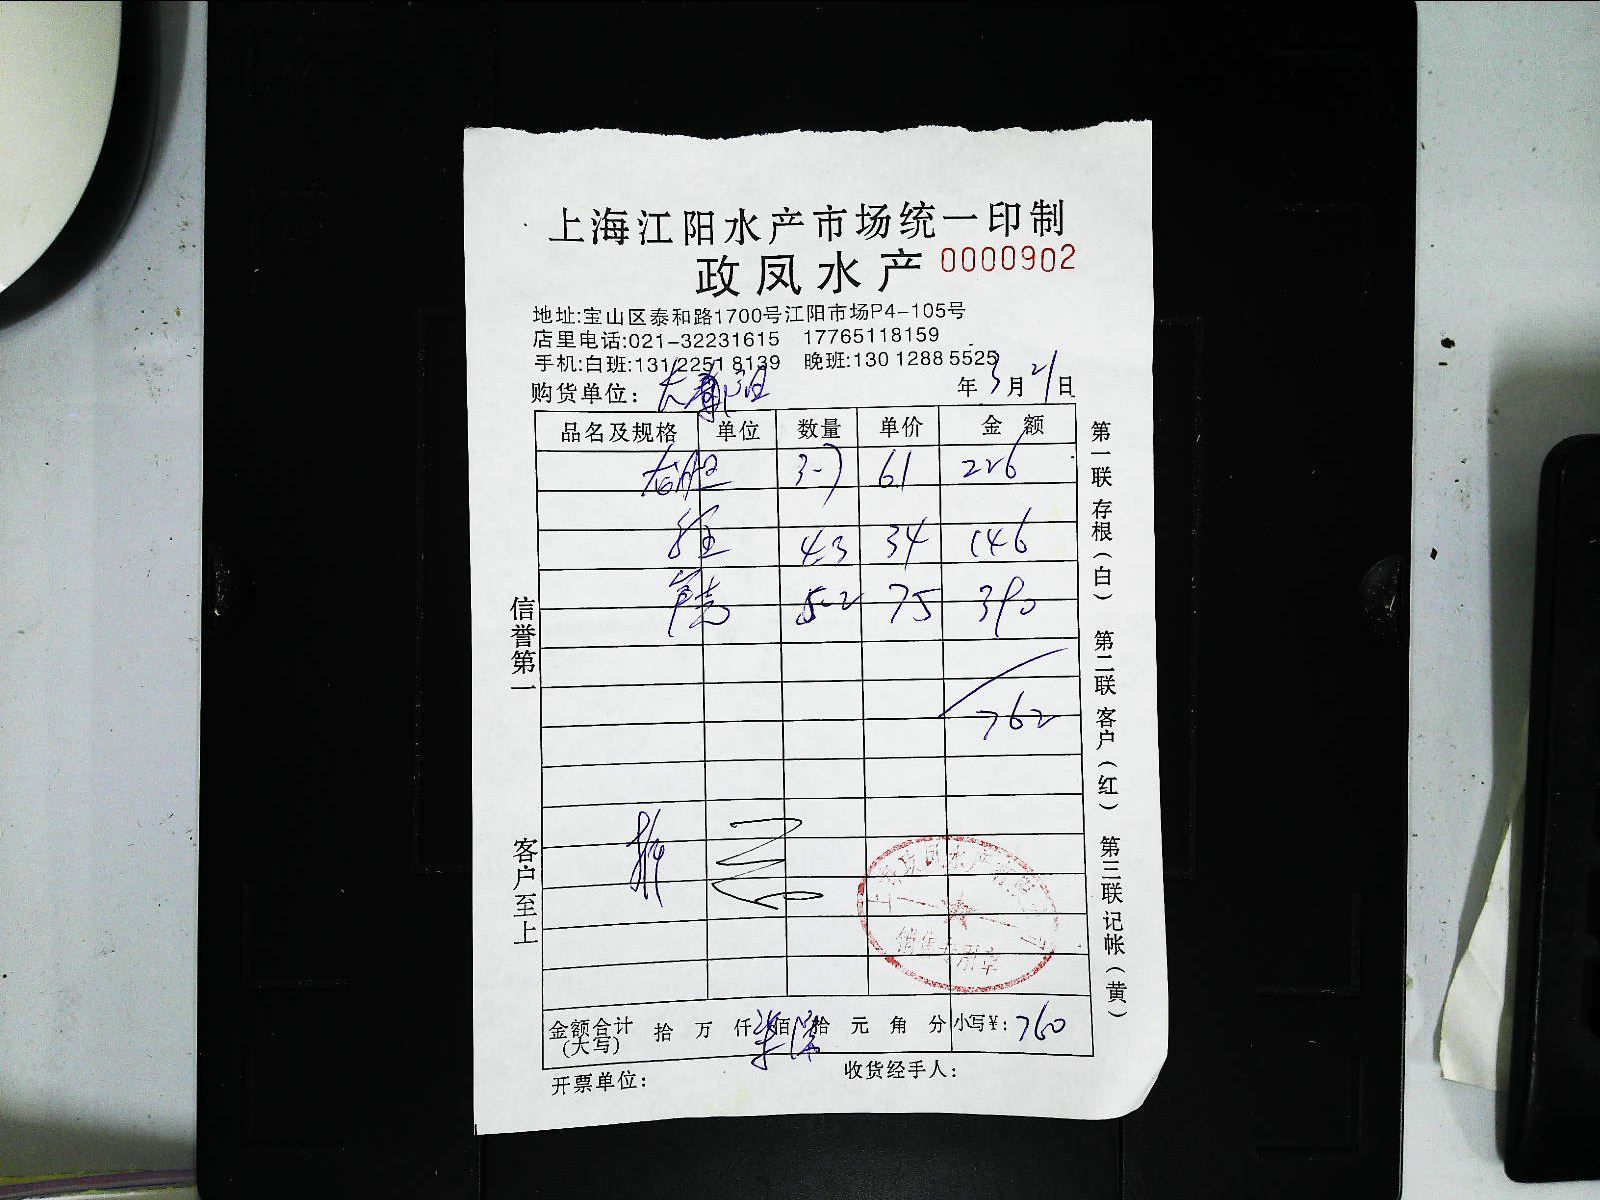 上海江阳水产市场统一印制
政凤水产 0000902
地址:宝山区泰和路1700号江阳市场P4-105号
店里电话:021-32231615 17765118159
手机:白班:131 2251 8139 晚班:130 1288 5525
购货单位: 年 3 月 21 日
品名及规格 单位 数量 单价 金额
3-7 61 226
43 34 146
5-2 75 390
762
金额合计(大写) 拾 万 仟 佰 拾 元 角 分 小写¥: 760
开票单位: 收货经手人:
信誉第一 客户至上
第一联存根(白) 第二联客户(红) 第三联记帐(黄)
销售专用章